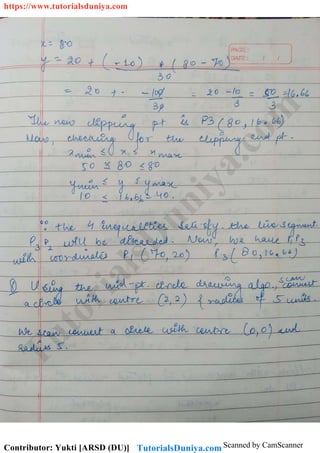 https://www.tutorialsduniya.com
PAGE:
DATE: / /
x = 80
y = 20 + (-10) * (80 - 70)
30
= 20 + - 100 = 20 - 10 = 50 = 16.66
30 3 3
The new clipping pt is P3 (80, 16.66)
Now, checking for the clipping end pt.
xmin ≤ x ≤ xmax
50 ≤ 80 ≤ 80
ymin ≤ y ≤ ymax
10 ≤ 16.66 ≤ 40.
∵ the 4 inequalities satisfy the line segment
P3P2 will be discarded. Now, we have P1P3
with coordinates P1 (70, 20) P3 (80, 16.66)
Q Using the mid-pt. circle drawing algo., scan convert
a circle with centre (2,2) & radius of 5 units.
We scan convert a circle with centre (0,0) and
radius 5.
Contributor: Yukti [ARSD (DU)] TutorialsDuniya.com Scanned by CamScanner